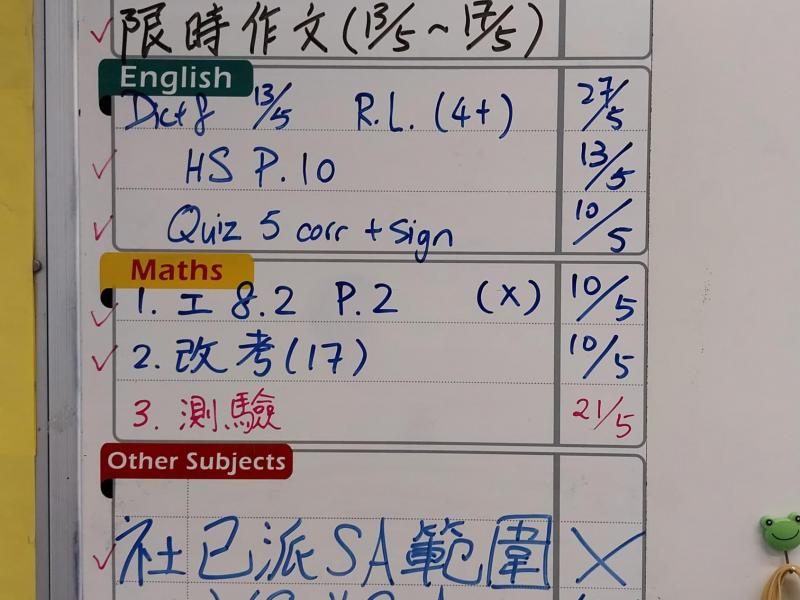 限時作文(13/5~17/5)
English
Dict 8 13/5 R.L. (4+) 27/5
HS P.10 13/5
Quiz 5 corr + sign 10/5
Maths
1. 工 8.2 P.2 (x) 10/5
2. 改考(17) 10/5
3. 測驗 21/5
Other Subjects
社已派SA範圍 X